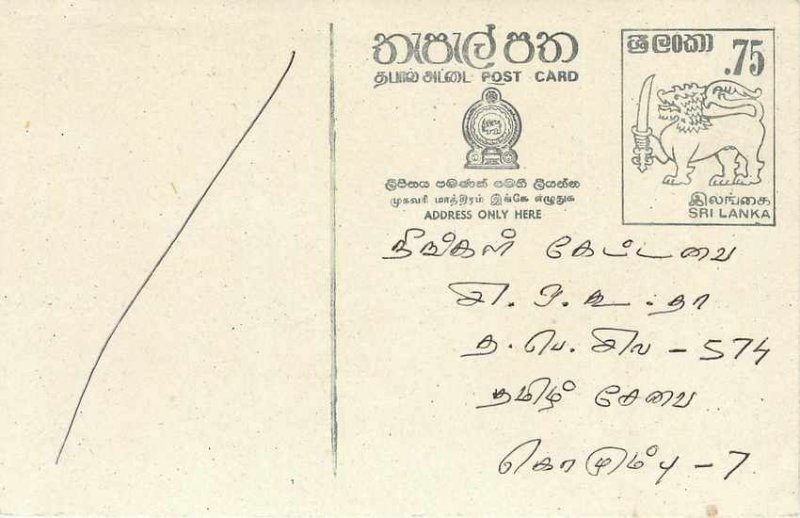 තැපැල් පත
தபால் அட்டை POST CARD
ලිපිනය පමණක් මෙහි ලියන්න
முகவரி மாத்திரம் இங்கே எழுதுக
ADDRESS ONLY HERE
ශ්‍රී ලංකා
.75
இலங்கை
SRI LANKA
நீங்கள் கேட்டவை
த.பெ. - 574
தமிழ் சேவை
கொழும்பு - 7